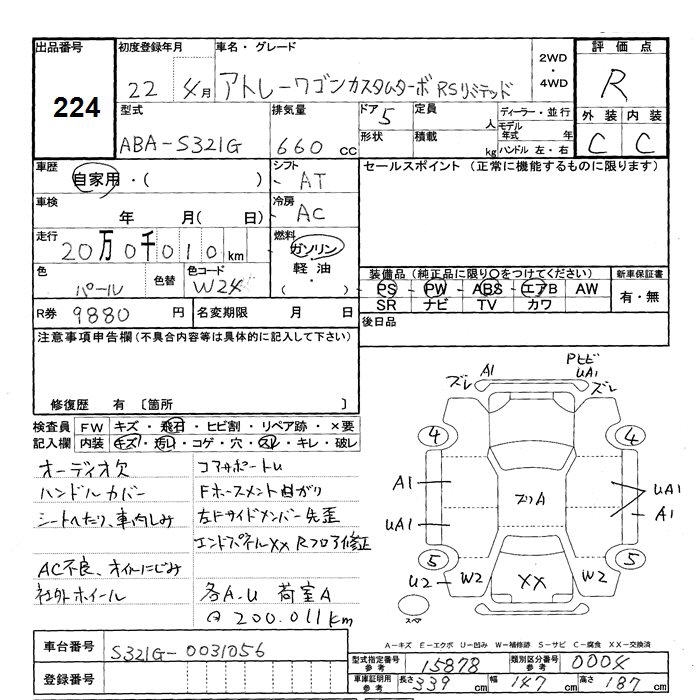 出品番号 初度登録年月 車名・グレード 2WD・4WD 評価点
224 22 4月 アトレーワゴンカスタムターボRSリミテッド R
型式 排気量 ドア 5 定員 人 ディーラー・並行 外装 内装
ABA-S321G 660 cc 形状 積載 kg モデル年式 年 ハンドル 左・右 C C
車歴 自家用・( ) シフト AT セールスポイント (正常に機能するものに限ります)
車検 年 月( 日) 冷房 AC
走行 20万0千010km 燃料 ガソリン・軽油・( )
色 パール 色替 色コード W24
装備品 (純正品に限り○をつけてください) 新車保証書
PS PW ABS エアB AW 有・無
SR ナビ TV カワ
R券 9880 円 名変期限 月 日 後日品
注意事項申告欄(不具合内容等は具体的に記入して下さい)
修復歴 有 〔箇所 〕
検査員 FW キズ・飛石・ヒビ割・リペア跡・×要
記入欄 内装 キズ・汚れ・コゲ・穴・スレ・キレ・破レ
オーディオ欠 コアサポートU
ハンドルカバー Fホースメント曲がり
シートへたり、車内しみ 左Fサイドメンバー先歪
エンドパネルXX Rフロア修正
AC不良、オイルにじみ
社外ホイール 各A-U 荷室A
200.011km
A1 ズレ Pヒビ UA1 ズレ
4 4
A1 ズリA UA1
UA1 A1
5 5
U2 W2 XX W2
スペア
A-キズ E-エクボ U-凹み W-補修跡 S-サビ C-腐食 XX-交換済
車台番号 S321G-0031056
登録番号
型式指定番号 参考 15878 類別区分番号 参考 0004
車庫証明用 参考 長さ 339 cm 幅 147 cm 高さ 187 cm